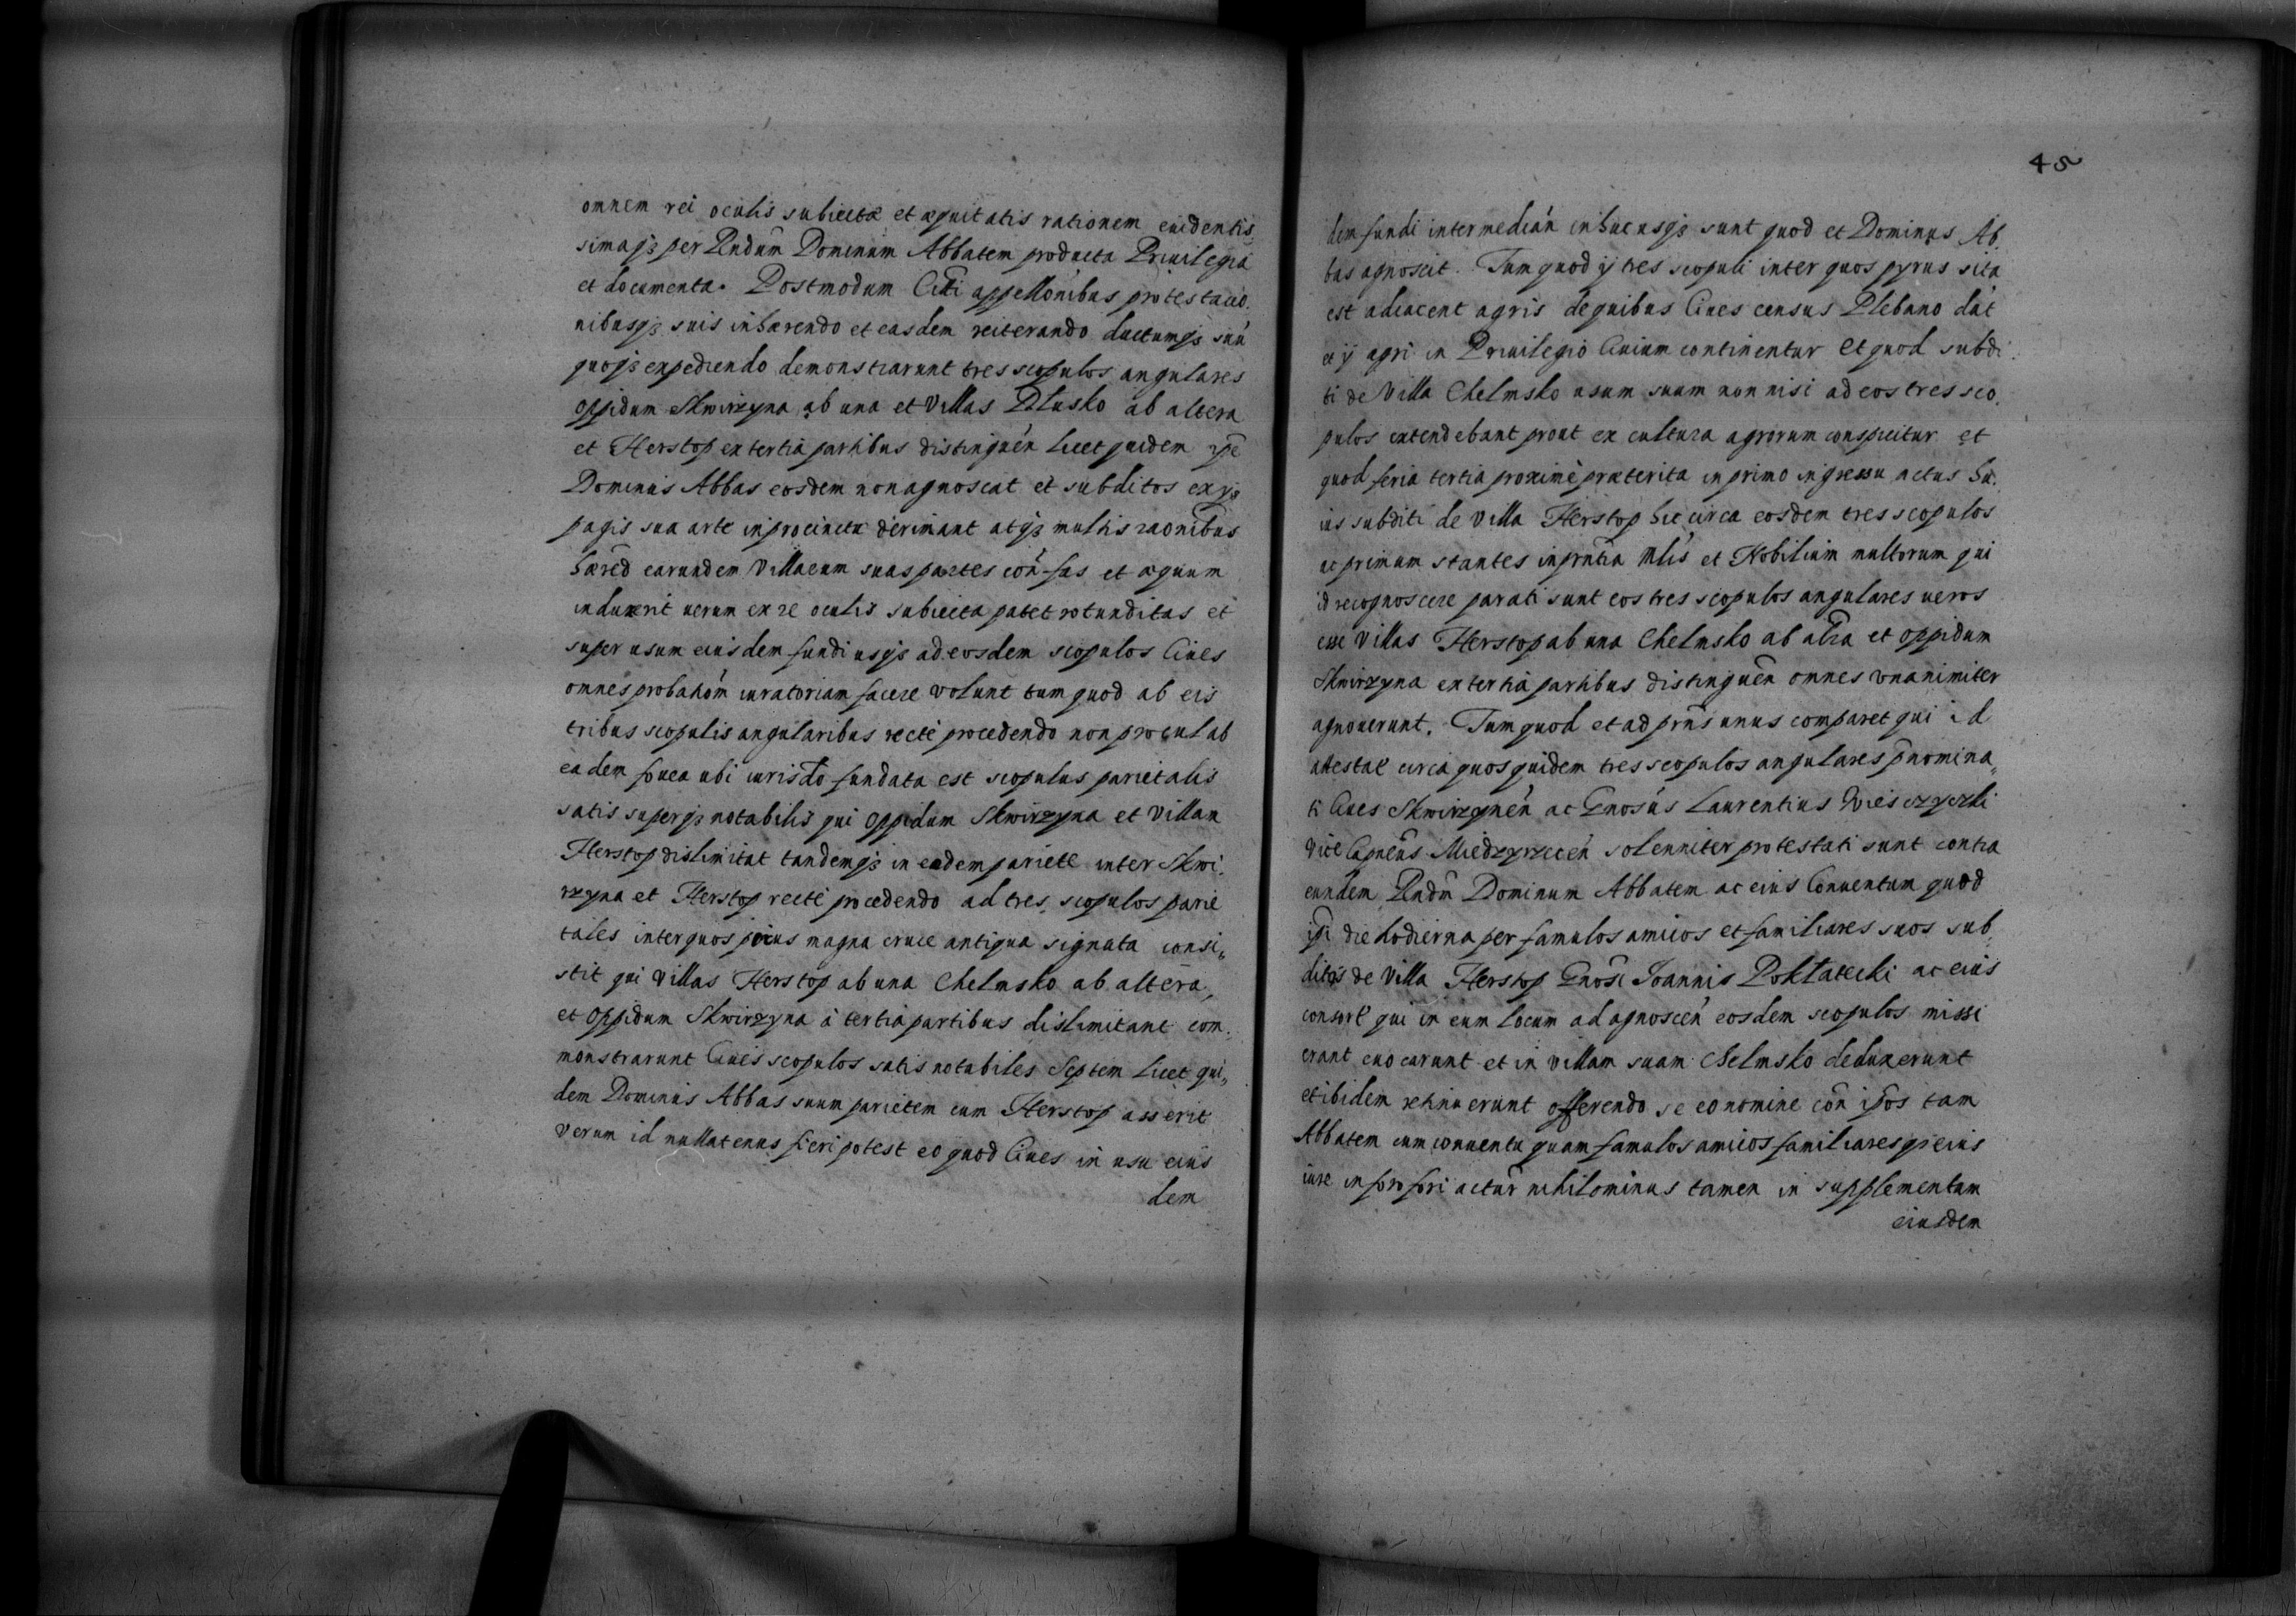 omnem rei oculis subiectæ et æquitatis rationem euidentis,
simaqȝ per Rndum Dominum Abbatem producta Priuilegia
et documenta. Postmodum Citti appellonibus protestatio,
nibusqȝ suis inhærendo et easdem reiterando ductumqȝ suū
quoqȝ expediendo demonstrarunt tres scopulos angulares
oppidum Skwirzyna ab una et Villas Plusko ab altera
et Herstop ex tertia partibus distinguen̄ licet quidem ip̄e
Dominus Abbas eosdem non agnoscat et subditos ex
pagis sua arte in procinctu derimant atqȝ multis raonibus
hæred earundem Villarum suas partes con fas et æquum
induxerit uerum ex re oculis subiecta patet rotunditas et
super usum eiusdem fundi usqȝ ad eosdem scopulos Ciues
omnes probahom̄ iuratoriam facere volunt tum quod ab eis
tribus scopulis angularibus recte procedendo non procul ab
eadem fouea ubi iurisdō fundata est scopulus parietalis
satis superqȝ notabilis qui oppidum Skwirzyna et Villam
Herstop dislimitat tandemqȝ in eadem pariete inter Skwi,
rzyna et Herstop recte procedendo ad tres scopulos parie
tales inter quos pirus magna cruce antiqua signata consi,,
stit qui Villas Herstop ab una Chelmsko ab altera,
et Oppidum Skwirzyna à tertia partibus dislimitant com,
monstrarunt Ciues scopulos satis notabiles Septem licet qui,,
dem Dominus Abbas suum parietem cum Herstop asserit
verum id nullatenus fieri potest eo quod Ciues in usu eius
dem
45
dem fundi intermedian̄ in hucusqȝ sunt quod et Dominus Ab,
bas agnoscit. Tum quod ij tres scopuli inter quos pyrus sita
est adiacent agris de quibus Ciues census Plebano dāt
et ij agri in Priuilegio Ciuium continentur Et quod subdi,
ti de Villa Chelmsko usum suum non nisi ad eos tres sco,
pulos extendebant prout ex cultura agrorum conspicitur et
quod feria tertia proxime præterita in primo ingressu actus hu,
ius subditi de Villa Herstop hic circa eosdem tres scopulos
ac primum stantes in prn̄tia Mlis et Nobilium multorum qui
id recognoscere parati sunt eos tres scopulos angulares ueros
esse Villas Herstop ab una Chelmsko ab alr̄a et oppidum
Skwirzyna ex tertia partibus distinguen̄ omnes vnanimiter
agnouerunt. Tum quod et ad prn̄s unus comparet qui id
attestat̄ circa quos quidem tres scopulos angulares pnomina,,
ti Ciues Skwirzynen̄ ac Gnosus Laurentius Wiesczyczki
vice Capneus Miedzyrzecen̄ solenniter protestati sunt contra
eundem Rndm̄ Dominum Abbatem ac eius Conuentum quod
ip̄i die hodierna per famulos amicos et familiares suos sub,
ditos de Villa Herstop Gnosi Ioannis Poklatecki ac eius
consort̄ qui in eum locum ad agnoscen̄ eosdem scopulos missi
erant euocarunt et in villam suam Chelmsko deduxerunt
et ibidem retinuerunt offerendo se eo nomine con̄ ip̄os tam
Abbatem cum conuentu quam famulos amicos familiaresqȝ eius
iure in foro fori actur̄ nihilominus tamen in supplementum
eiusdem